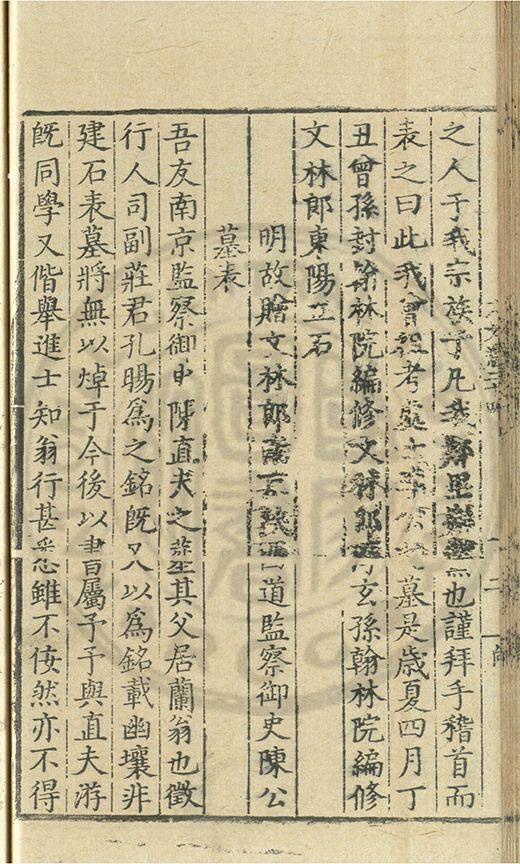 之人于我宗族于凡我鄰里無也謹拜手稽首而
表之曰此我曾祖考處士墓是歲夏四月丁
丑曾孫封翰林院編修文林郎玄孫翰林院編修
文林郎東陽立石
明故贈文林郎南京道監察御史陳公
墓表
吾友南京監察御史陳直夫之葬其父居蘭翁也徵
行人司副莊君孔暘為之銘既又以為銘載幽壤非
建石表墓將無以焯于今後以書屬予予與直夫游
既同學又偕舉進士知翁行甚悉雖不佞然亦不得